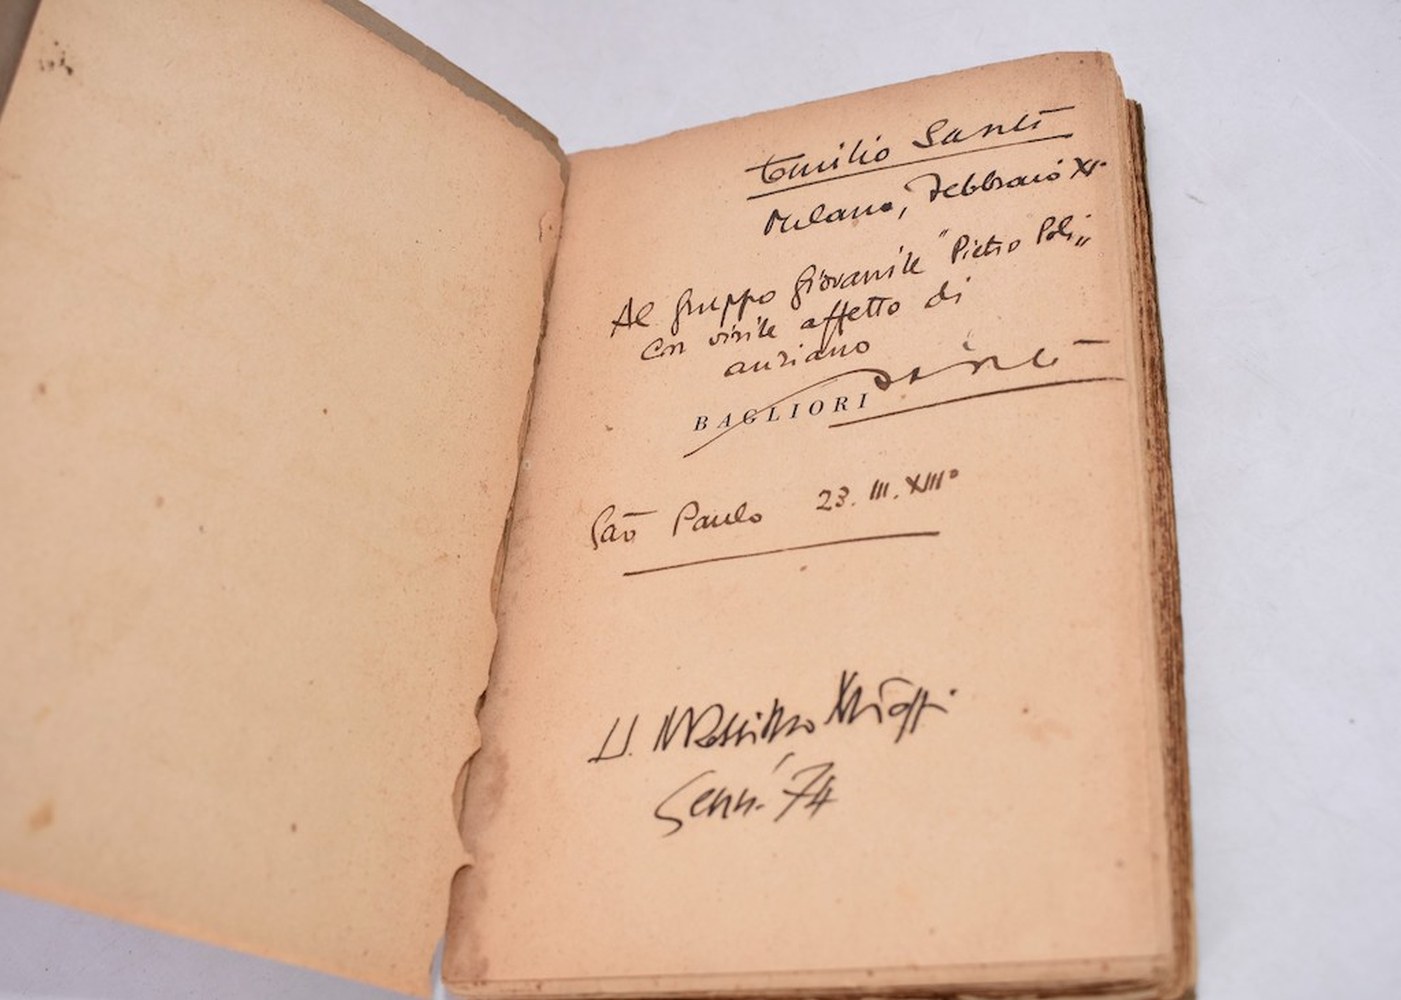 Emilio Santi
Milano, Febbraio XI°
Al Gruppo Giovanile "Pietro Poli„
Con virile affetto di
anziano
Santi
BAGLIORI
São Paulo 23. III. XIII°
U.
Genn. '74